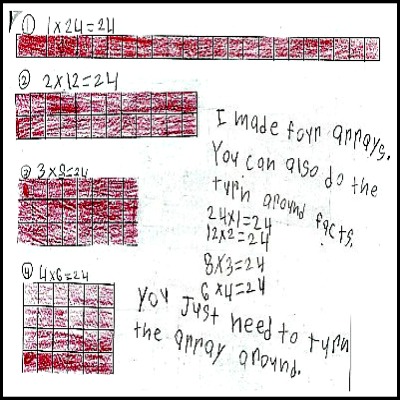 ① 1x24=24
② 2x12=24
③ 3x8=24
④ 4x6=24
I made four arrays.
You can also do the
turn around facts.
24x1=24
12x2=24
8x3=24
6x4=24
You just need to turn
the array around.